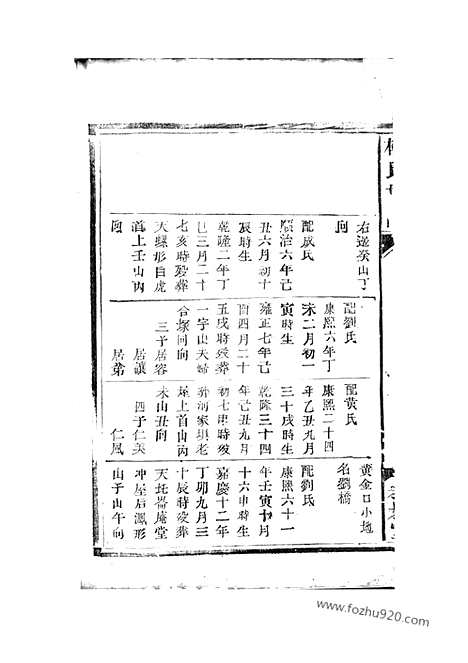 右邊癸山丁
向
配成氏
順治六年己
丑六月初十
辰時生
乾隆二年丁
巳三月二十
七亥時歿葬
天螺形白虎
嘴上壬山丙
向
配劉氏
康熙六年丁
未二月初一
寅時生
雍正七年己
酉四月二十
五戌時歿葬
一字山夫婦
合塚同向
三子居容
居讓
居弟
配黃氏
康熙二十四
年乙丑九月
三十戌時生
乾隆三十四
年己丑九月
初七申時歿
葬河家垻老
屋上首山丙
未山丑向
四子仁美
仁風
黃金口小地
名劉橋
配劉氏
康熙六十一
年壬寅十月
十六申時生
嘉慶十二年
丁卯九月三
十辰時歿葬
天圫崙庵堂
冲屋后鳳形
山子山午向
www.fozhu920.com